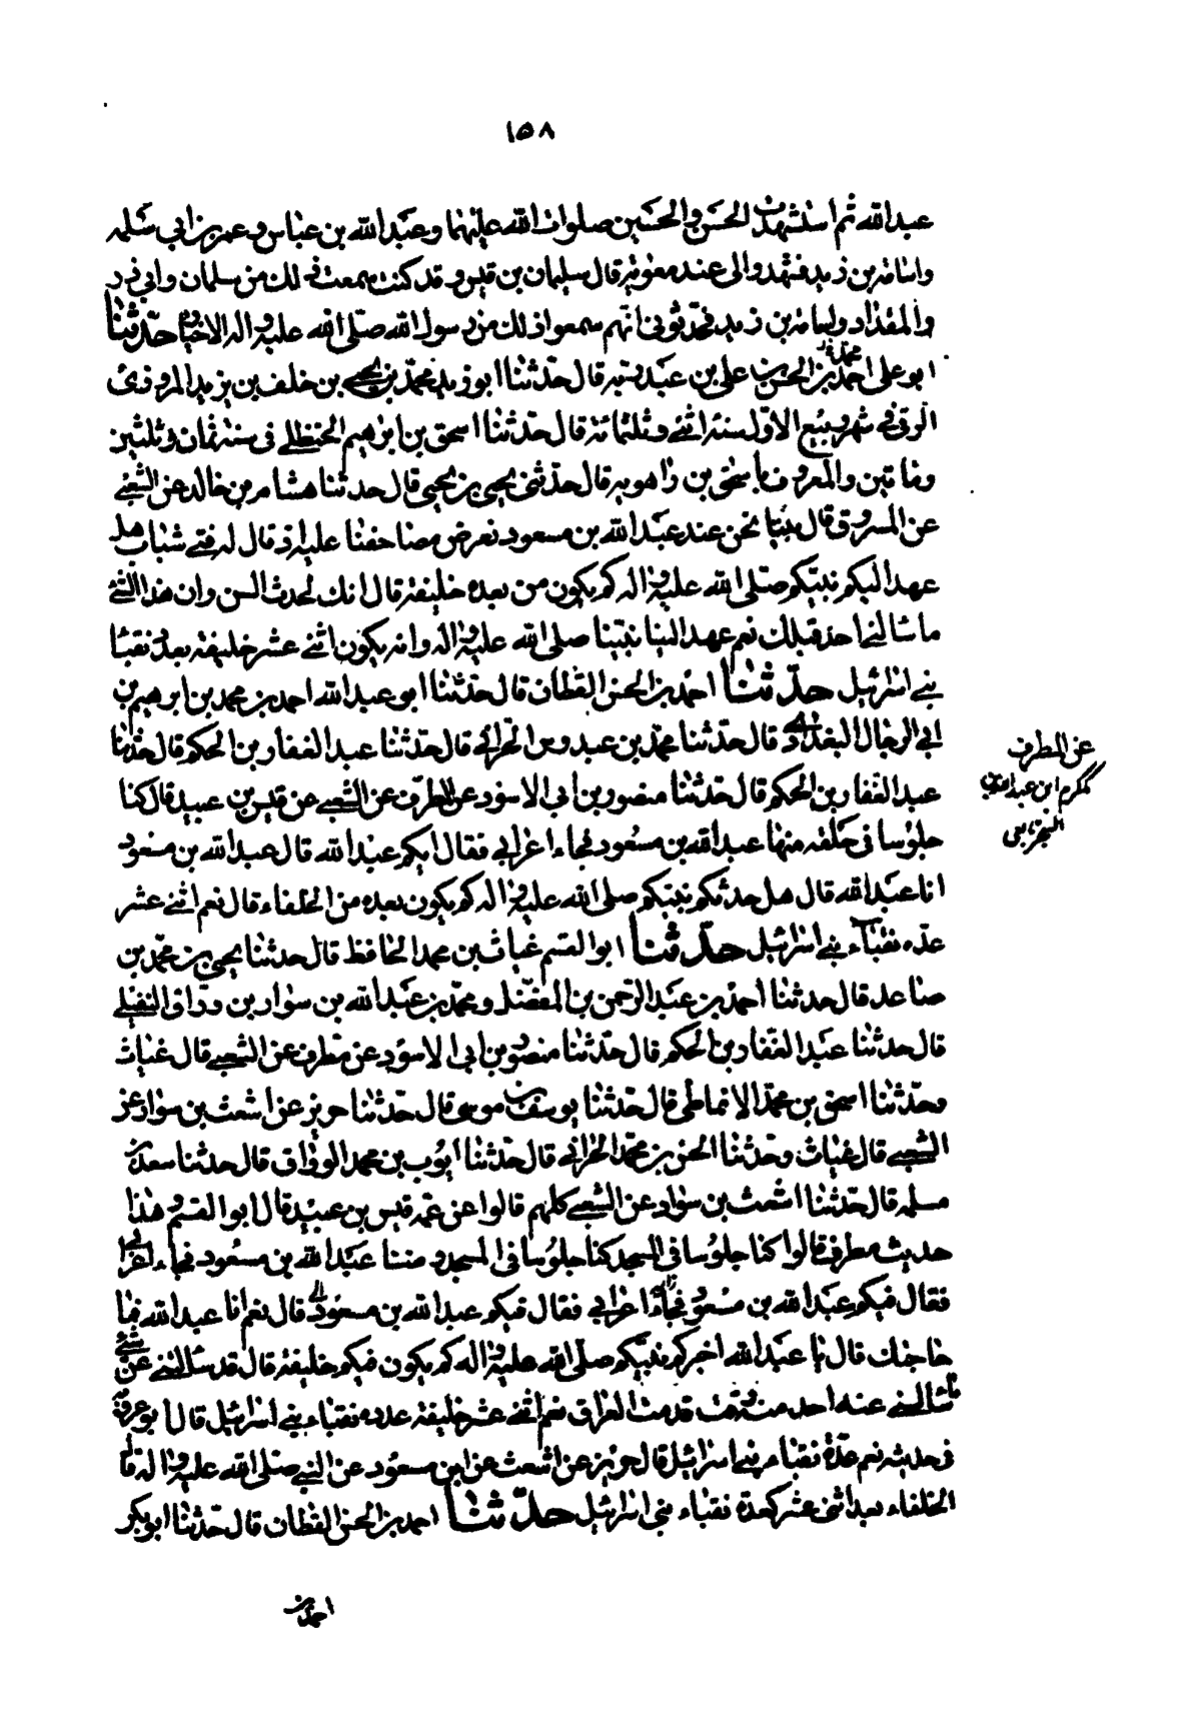 ١٥٨
عبدالله ثم استشهدت الحسن والحسين صلوات الله عليهما وعبدالله بن عباس وعمر بن ابي سلمه
واسامة بن زيد فشهدوا لى عند معوية قال سليمان بن قيس وقد كنت سمعت ذلك من سلمان وابي ذر
والمقداد واسامة بن زيد فحدثونى انهم سمعوا ذلك من رسول الله صلى الله عليه واله الاخيار حدثنا
ابو على احمد بن محمد بن الحسن بن على بن عبد ربه قال حدثنا ابو زيد محمد بن يحيى بن خلف بن يزيد المروزى
الرى فى شهر ربيع الاول سنة اثنى وثلثمائة قال حدثنا اسحق بن ابرهيم الحنظلى فى سنة ثمان وثلثين
ومأتين والمعروف باسحق بن راهويه قال حدثنى يحيى بن يحيى قال حدثنا هشام بن خالد عن الشعبى
عن المسروق قال بينا نحن عند عبدالله بن مسعود نعرض مصاحفنا عليه اذ قال له فتى شاب هل
عهد اليكم نبيكم صلى الله عليه واله كم يكون من بعده خليفة قال انك لحدث السن وان هذا الشئ
ما سالنى احد قبلك نعم عهد الينا نبينا صلى الله عليه واله وانه يكون اثنى عشر خليفة بعدد نقباء
بنى اسرئيل حدثنا احمد بن الحسن القطان قال حدثنا ابو عبدالله احمد بن محمد بن ابرهيم بن
ابى الرجال البغدادى قال حدثنا محمد بن عبدوس الحرانى قال حدثنا عبد الغفار بن الحكم قال حدثنا
عبد الغفار بن الحكم قال حدثنا منصور بن ابى الاسود عن المطرف عن الشعبى عن قيس بن عبيد قال كنا
جلوسا فى حلقة منها عبدالله بن مسعود فجاء اعرابى فقال ايكم عبدالله قال عبدالله بن مسعود
انا عبدالله قال هل حدثكم نبيكم صلى الله عليه واله كم يكون بعده من الخلفاء قال نعم اثنى عشر
عده نقباء بنى اسرئيل حدثنا ابو القسم غياث بن محمد الحافظ قال حدثنا يحيى بن محمد بن
صاعد قال حدثنا احمد بن عبد الرحمن بن المفضل ومحمد بن عبدالله بن سوار بن وراق النفيلى
قال حدثنا عبد الغفار بن الحكم قال حدثنا منصور بن ابى الاسود عن مطرف عن الشعبى قال غياث
وحدثنا اسحق بن محمد الانماطى قال حدثنا يوسف بن موسى قال حدثنا حريز عن اشعث بن سوار عن
الشعبى قال غياث وحدثنا الحسن بن محمد الحرانى قال حدثنا ايوب بن محمد الوزاق قال حدثنا سعد بن
مسلمه قال حدثنا اشعث بن سوار عن الشعبى كلهم قالوا عن عمه قيس بن عبيد قال ابو القسم وهذا
حديث مطرف قالوا كنا جلوسا فى المسجد كنا جلوسا فى المسجد و معنا عبدالله بن مسعود فجاء اعرابى
فقال فيكم عبدالله بن مسعود فجاء اعرابى فقال فيكم عبدالله بن مسعود قال نعم انا عبدالله فما
حاجتك قال يا عبدالله اخبركم نبيكم صلى الله عليه واله كم يكون فيكم خليفة قال قد سالتنى عن شئ
ما سالنى عنه احد منذ قدمت العراق نعم اثنى عشر خليفة عدده نقباء بنى اسرئيل قال ابو عروبة
فى حديثه نعم عدة نقباء بنى اسرائيل قال حريز عن اشعث عن ابن مسعود عن النبى صلى الله عليه واله قال
الخلفاء بعد اثنى عشر كعدة نقباء بنى اسرئيل حدثنا احمد بن الحسن القطان قال حدثنا ابو بكر
احمد بن
عن المطرف